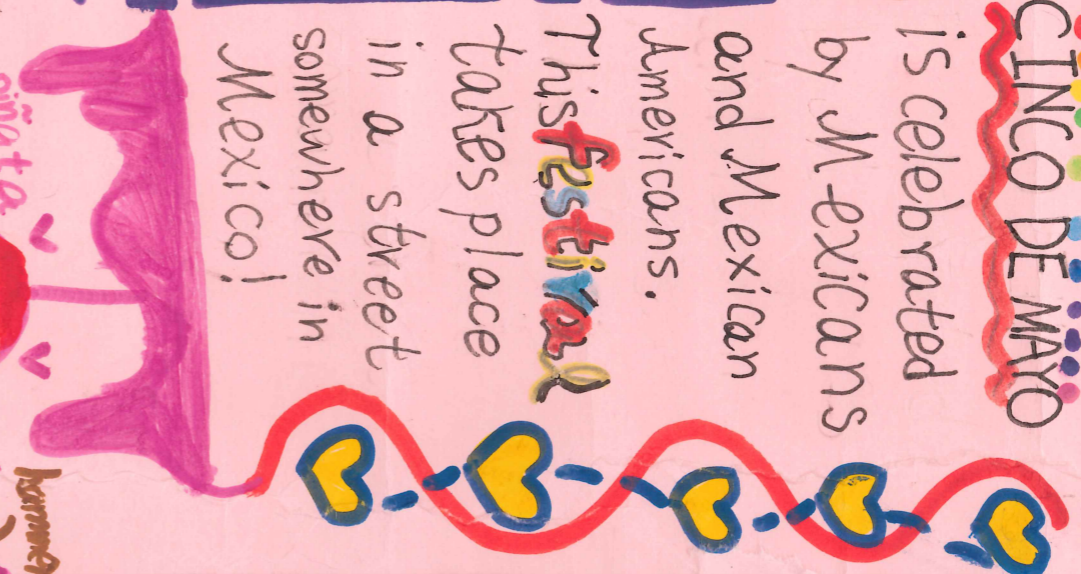 CINCO DE MAYO
is celebrated
by Mexicans
and Mexican
Americans.
This festival
takes place
in a street
somewhere in
Mexico!
piñata
hammer